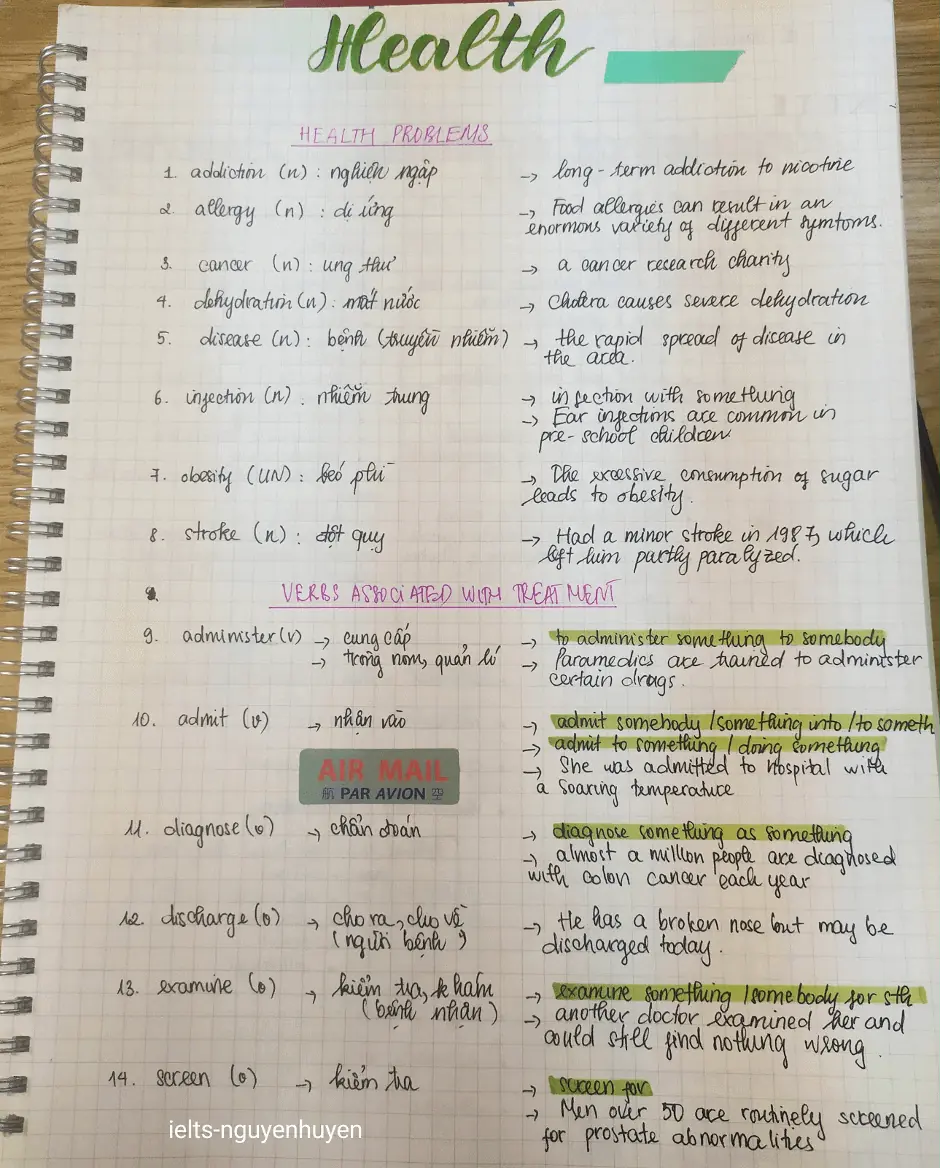 Health
HEALTH PROBLEMS
1. addiction (n) : nghiện ngập → long-term addiction to nicotine
2. allergy (n) : dị ứng → Food allergies can result in an
enormous variety of different symtoms.
3. cancer (n) : ung thư → a cancer research charity
4. dehydration (n) : mất nước → Cholera causes severe dehydration
5. disease (n) : bệnh (truyền nhiễm) → the rapid spread of disease in
the area.
6. infection (n) : nhiễm trung → infection with something
→ Ear infections are common in
pre-school children
7. obesity (UN) : béo phì → The excessive consumption of sugar
leads to obesity.
8. stroke (n) : đột quỵ → Had a minor stroke in 1987, which
left him partly paralyzed.
VERBS ASSOCIATED WITH TREATMENT
9. administer (v) → cung cấp → to administer something to somebody
→ trông nom, quản lí → Paramedics are trained to administer
certain drugs.
10. admit (v) → nhận vào → admit somebody / something into / to someth
→ admit to something / doing something
→ She was admitted to hospital with
a soaring temperature
AIR MAIL
航 PAR AVION 空
11. diagnose (v) → chẩn đoán → diagnose something as something
→ almost a million people are diagnosed
with colon cancer each year
12. discharge (v) → cho ra, cho về → He has a broken nose but may be
(người bệnh) discharged today.
13. examine (v) → kiểm tra, khám → examine something / somebody for sth
(bệnh nhân) → another doctor examined her and
could still find nothing wrong.
14. screen (v) → kiểm tra → screen for
→ Men over 50 are routinely screened
for prostate abnormalities
ielts-nguyenhuyen